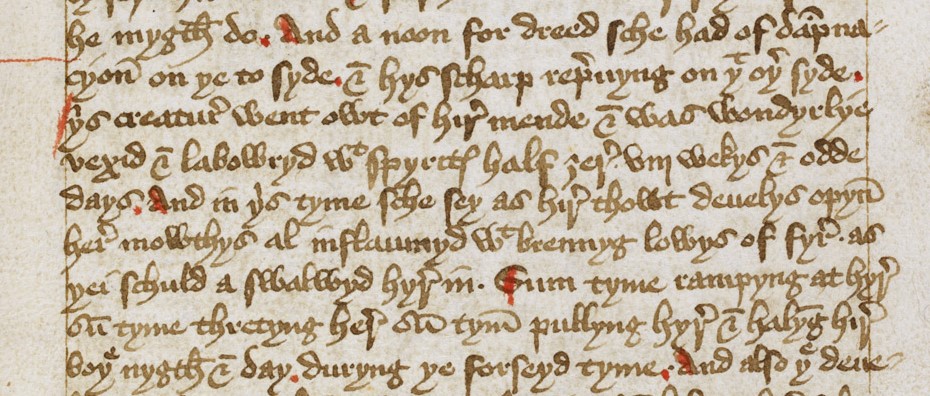 he mygth do. And a noon for dreed sche had of dāpna=
cyon̄ on ye to syde. & hys scharp rep̄uyng on yͭ oyʳ syde.
yis creatur̛ went owt of hir̛ mende & was wondyrlye
vexid & labowryd wͭ spyrytꝭ half ȝer̛. viij wekys & odde
days. And in yis tyme sche sey as hir̛ thowt deuelys opyn̄
her̛ mowthys al inflaumyd wͭ brennyg lowys of fyr̛. as
yei schuld a swalwyd hyr̛ in. Sum tyme rampyng at hyr̛
sū tyme thretyng her̛ sū tym̄ pullyng hyr̛ & halyn̄g hir̛
boyᵉ nygth & day. duryng ye forseyd tyme. And also yᵉ deue-